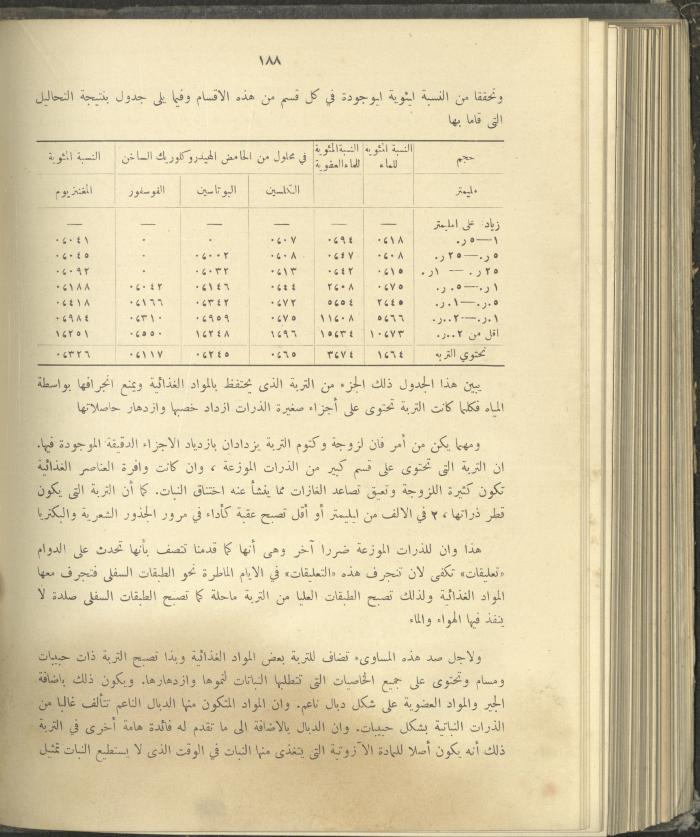 ١٨٨
وتحققا من النسبة المئوية الموجودة في كل قسم من هذه الاقسام وفيما يلى جدول بنتيجة التحاليل
التى قاما بها
حجم النسبة المئويه النسبة المئوية في محلول من الحامض الهيدروكلوريك الساخن النسبة المئوية
للماء للماء العضوية
مليمتر الكلسين البوتاسين الفوسفور المغنزيوم
زياد على المليمتر — — — — — —
١—٥ر. ٠٤١٨ ٠٤٩٤ ٠٤٠٧ ٠ ٠ ٠٤٠٤١
٥ر.—٢٥ر. ٠٤٠٨ ٠٤٤٧ ٠٤٠٨ ٠٤٠٠٢ ٠ ٠٤٠٤٥
٢٥ر.— ١ر. ٠٤١٥ ٠٤٤٢ ٠٤١٣ ٠٤٠٣٢ ٠ ٠٤٠٩٢
١ر.—٠٥ر. ٠٤٧٥ ٢٤٠٨ ٠٤٤٤ ٠٤١٤٦ ٠٤٠٤٢ ٠٤١٨٨
٠٥ر.—٠١ر. ٢٤٤٥ ٥٤٥٤ ٠٤٧٢ ٠٤٣٤٢ ٠٤١٦٦ ٠٤٤١٨
٠١ر.—٠٠٢ر. ٥٤٦٦ ١١٤٠٨ ٠٤٧٥ ٠٤٩٥٩ ٠٤٣١٠ ٠٤٩٨٤
اقل من ٠٠٢ر. ١٠٤٧٣ ١٥٤٣٤ ١٤٩٦ ١٤٢٤٨ ٠٤٥٥٠ ١٤٢٥١
تحتوي التربه ١٤٦٤ ٣٤٧٤ ٠٤٦٥ ٠٤٢٤٥ ٠٤١١٧ ٠٤٣٢٦
يبين هذا الجدول ذلك الجزء من التربة الذى يحتفظ بالمواد الغذائية ويمنع انجرافها بواسطة
المياه فكلما كانت التربة تحتوى على أجزاء صغيرة الذرات ازداد خصبها وازدهار حاصلاتها
ومهما يكن من أمر فان لزوجة وكتوم التربة يزدادان بازدياد الاجزاء الدقيقة الموجودة فيها.
ان التربة التى تحتوى على قسم كبير من الذرات الموزعة ، وان كانت وافرة العناصر الغذائية
تكون كثيرة اللزوجة وتعيق تصاعد الغازات مما ينشأ عنه اختناق النبات. كما أن التربة التى يكون
قطر ذراتها ، ٢ في الالف من المليمتر أو أقل تصبح عقبة كأداء في مرور الجذور الشعرية والبكتريا
هذا وان للذرات الموزعة ضررا آخر وهى أنها كما قدمنا تتصف بأنها تحدث على الدوام
«تعليقات» تكفى لان تنجرف هذه «التعليقات» في الايام الماطرة نحو الطبقات السفلى فتجرف معها
المواد الغذائية ولذلك تصبح الطبقات العليا من التربة ماحلة كما تصبح الطبقات السفلى صلدة لا
ينفذ فيها الهواء والماء
ولاجل صد هذه المساوىء تضاف للتربة بعض المواد الغذائية وبذا تصبح التربة ذات حبيبات
ومسام وتحتوى على جميع الخاصيات التى تتطلبها النباتات لنموها وازدهارها. ويكون ذلك باضافة
الجير والمواد العضوية على شكل دبال ناعم. وان المواد المتكون منها الدبال الناعم تتألف غالبا من
الذرات النباتية بشكل حبيبات. وان الدبال بالاضافة الى ما تقدم له فائدة هامة أخرى في التربة
ذلك أنه يكون أصلا للمادة الآزوتية التى يتغذى منها النبات في الوقت الذى لا يستطيع النبات تمثيل